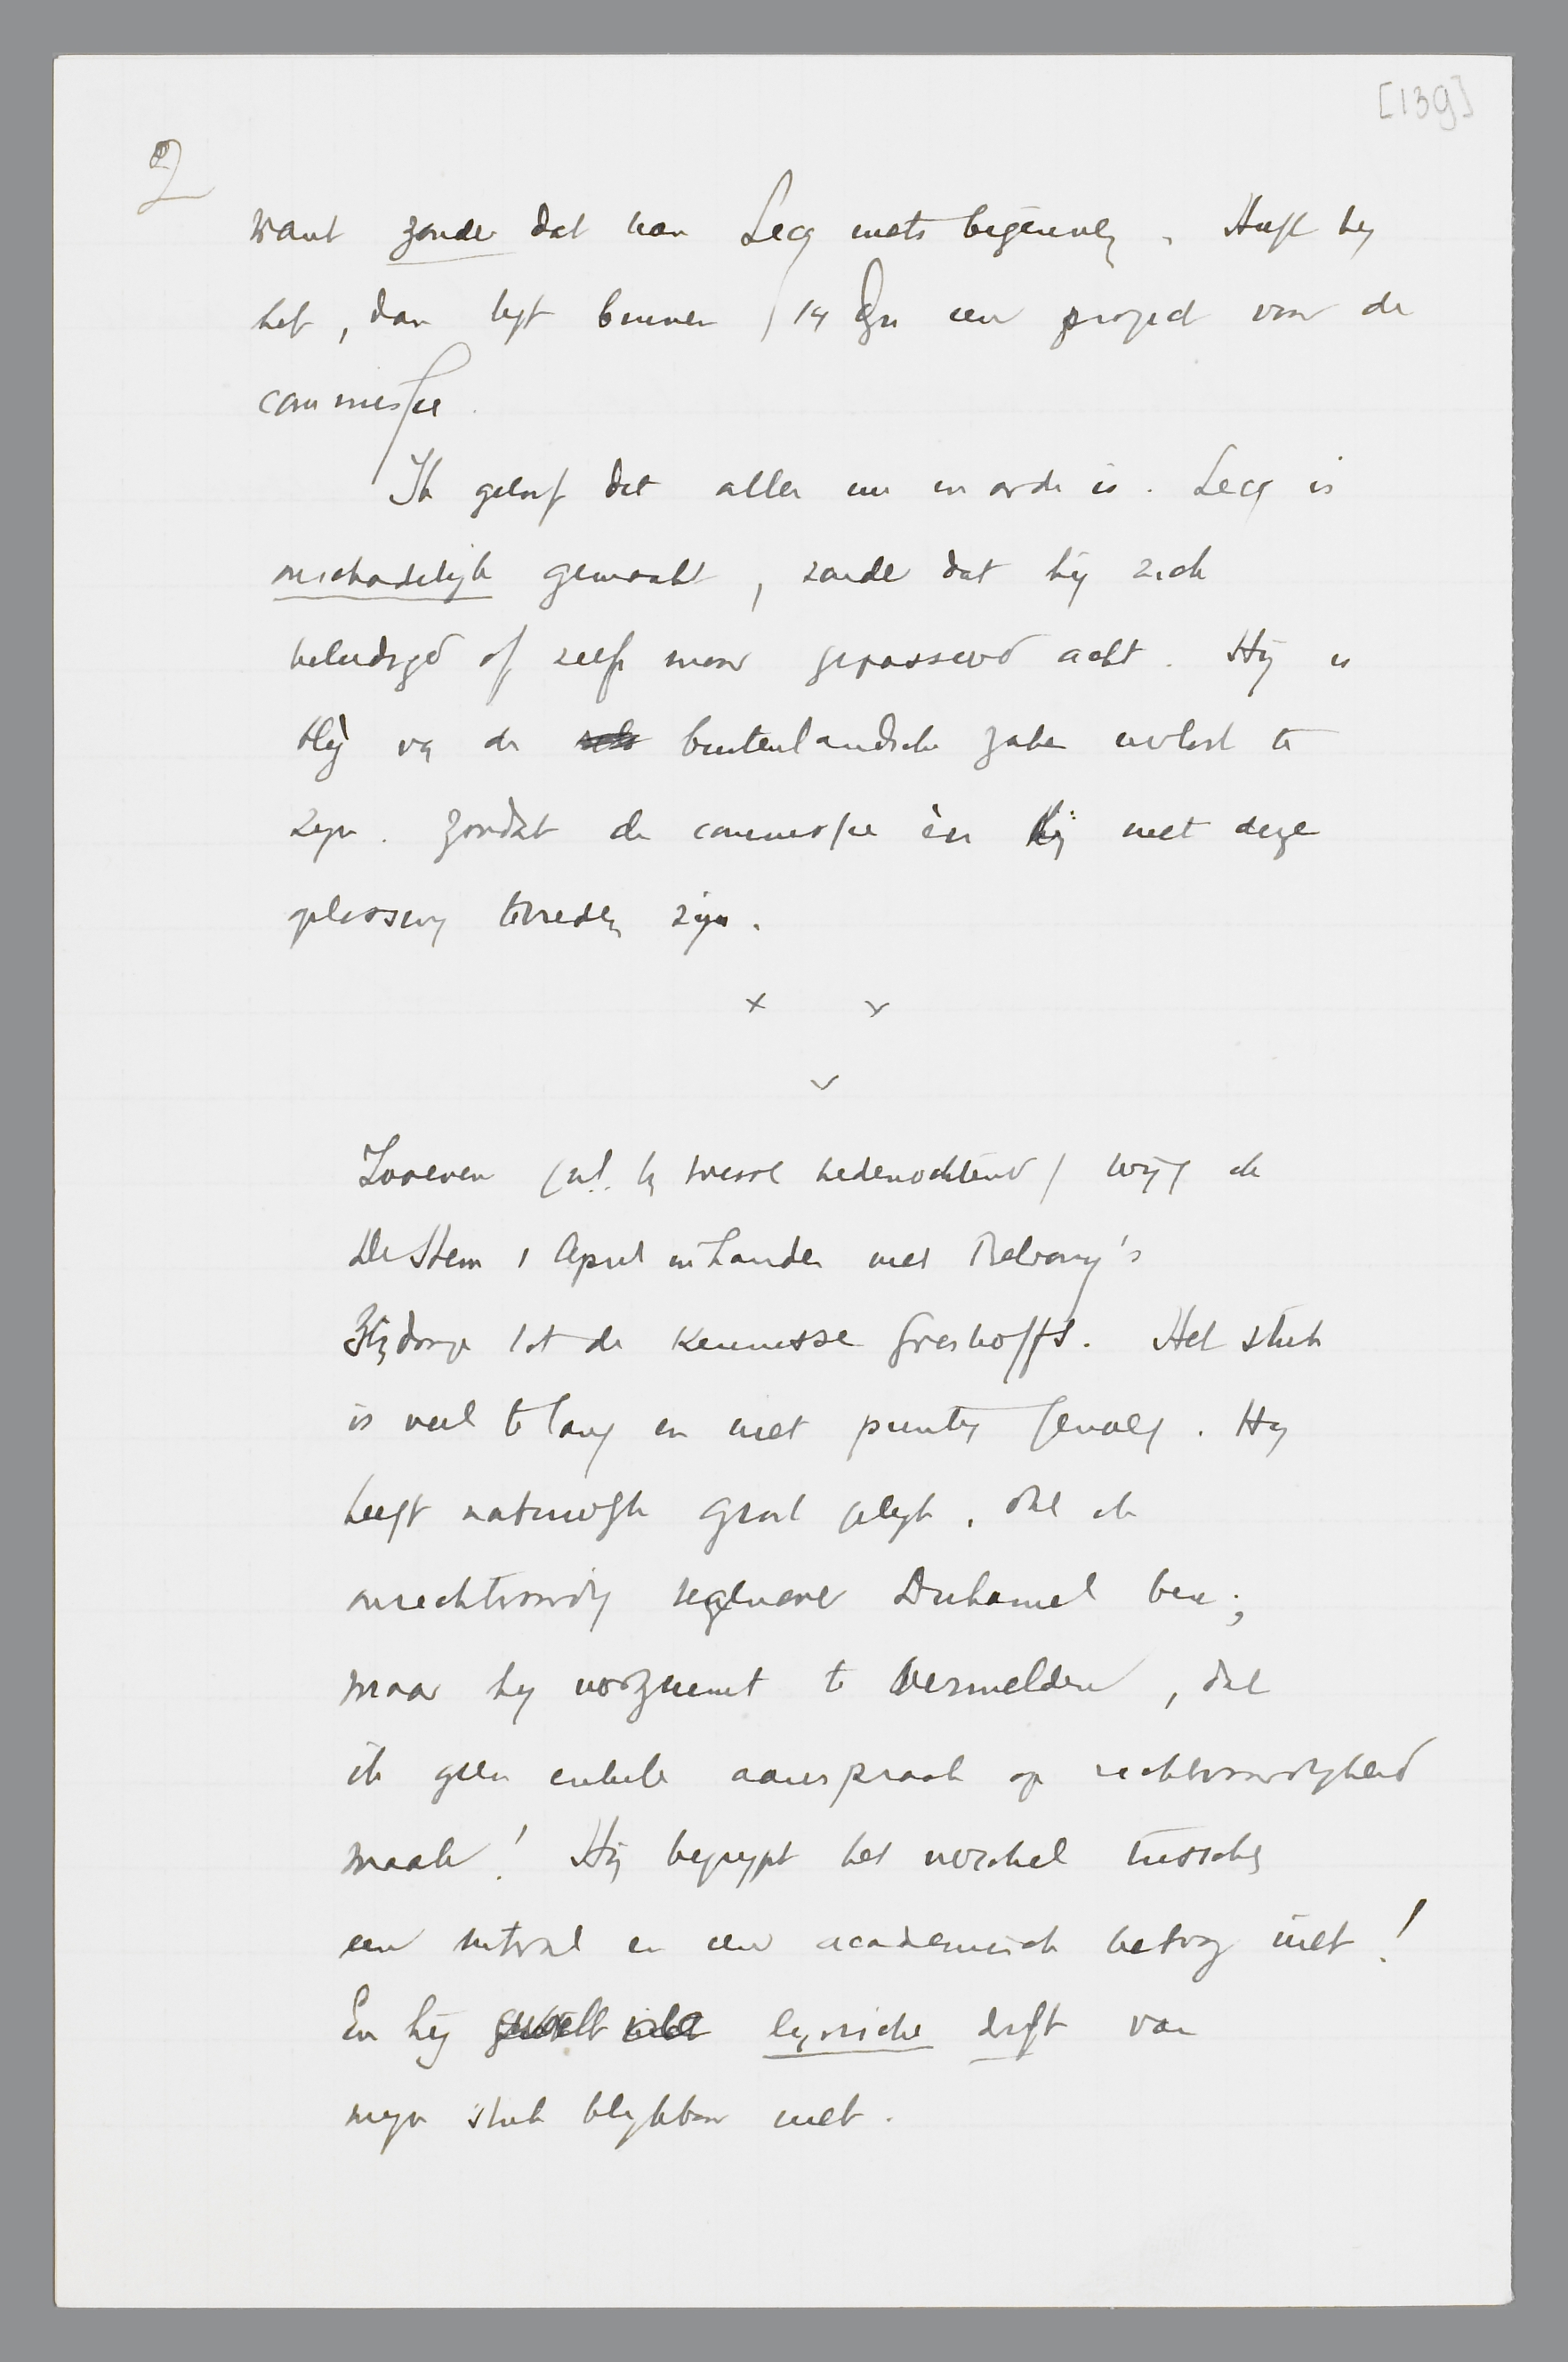 [139]
2
want zonder dat kan Lecq niets beginnen. Heeft hij
het, dan ligt binnen 14 dgn een project voor de
commissie.
Ik geloof dat alles nu in orde is. Lecq is
onschadelijk gemaakt, zonder dat hij zich
beleedigd of zelfs maar gepasseerd acht. Hij is
blij van de buitenlandsche zaken verlost te
zijn. Zoodat de commissie èn hij met deze
oplossing tevreden zijn.
x x
x
Zooeven (nl. hedenochtend) krijg ik
De Stem 1 April in handen met
Bijdrage tot de Kennisse Greshoffs. Het stuk
is veel te lang en niet puntig genoeg. Hij
heeft natuurlijk groot gelijk, dat ik
onrechtvaardig tegenover Duhamel ben;
maar hij verzuimt te vermelden, dat
ik geen enkele aanspraak op rechtvaardigheid
maak! Hij begrijpt het verschil tusschen
een en een academisch betoog niet!
En hij lyrische drift van
mijn stuk blijkbaar niet.